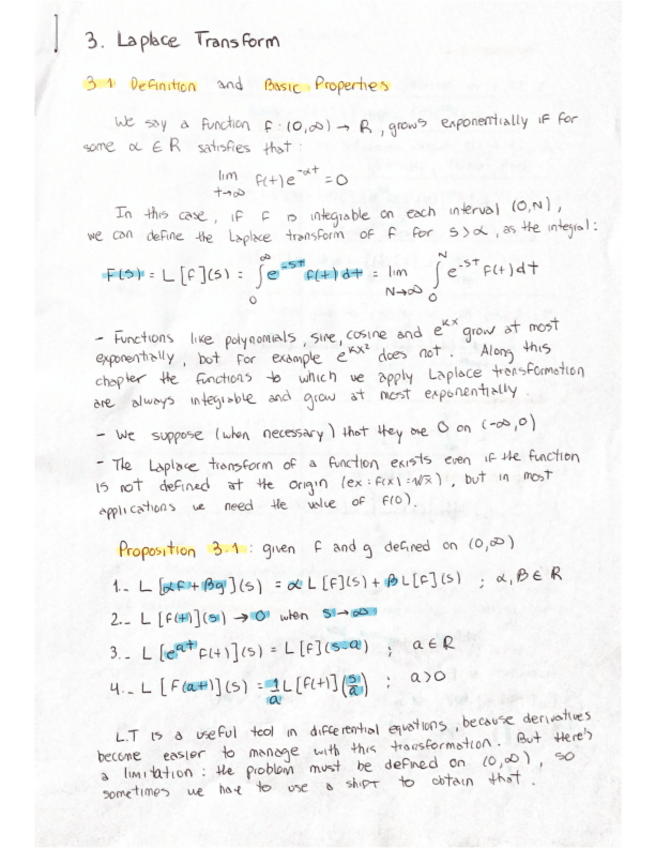 3. Laplace Transform
3.1 Definition and Basic Properties
We say a function f: (0,∞) → R, grows exponentially if for
some α ∈ R satisfies that:
lim t→∞ f(t)e^-αt = 0
In this case, if f is integrable on each interval (0,N),
we can define the Laplace transform of f for s>α, as the integral:
F(s) = L[f](s) = ∫_0^∞ e^-st f(t)dt = lim N→∞ ∫_0^N e^-st f(t)dt
- Functions like polynomials, sine, cosine and e^kx grow at most
exponentially, but for example e^kx² does not. Along this
chapter the functions to which we apply Laplace transformation
are always integrable and grow at most exponentially.
- We suppose (when necessary) that they are 0 on (-∞,0)
- The Laplace transform of a function exists even if the function
is not defined at the origin (ex: f(x)=1/√x), but in most
applications we need the value of f(0).
Proposition 3.1: given f and g defined on (0,∞)
1.- L[αf+βg](s) = αL[f](s) + βL[f](s) ; α,β ∈ R
2.- L[f(t)](s) → 0 when s→∞
3.- L[e^at f(t)](s) = L[f](s-a) ; a ∈ R
4.- L[f(at)](s) = 1/a L[f(t)](s/a) ; a>0
L.T is a useful tool in differential equations, because derivatives
become easier to manage with this transformation. But there's
a limitation: the problem must be defined on (0,∞), so
sometimes we have to use a shift to obtain that.